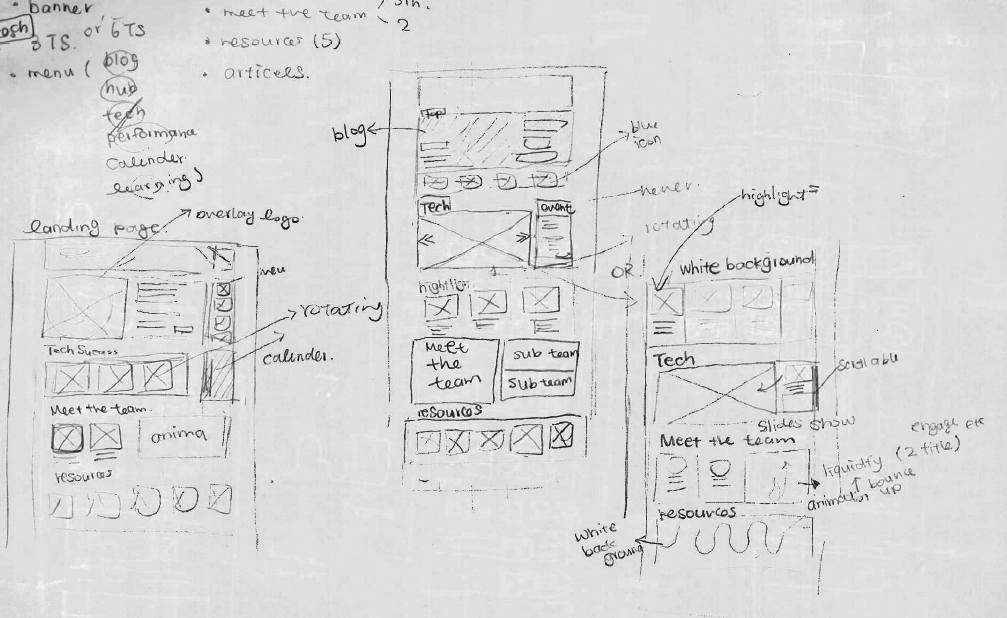 • banner
3 TS. or 6 TS
• menu ( blog
hub
tech
performana
Calender.
learning )
• meet the team
2
• resources (5)
• articels.
landing page.
overlay logo.
rotating
calinder.
Tech Sucess
Meet the team.
anima
resources
blog
Top
blue
icon
Tech
event
never.
rotating
highlight
OR
Meet
the
team
Sub team
Sub team
resources
highlight
White background
Tech
Scrollable
Slides show
Meet the team
engage etc
(2 title)
liquidfy
bounce
up
animation
resources
White
back
ground